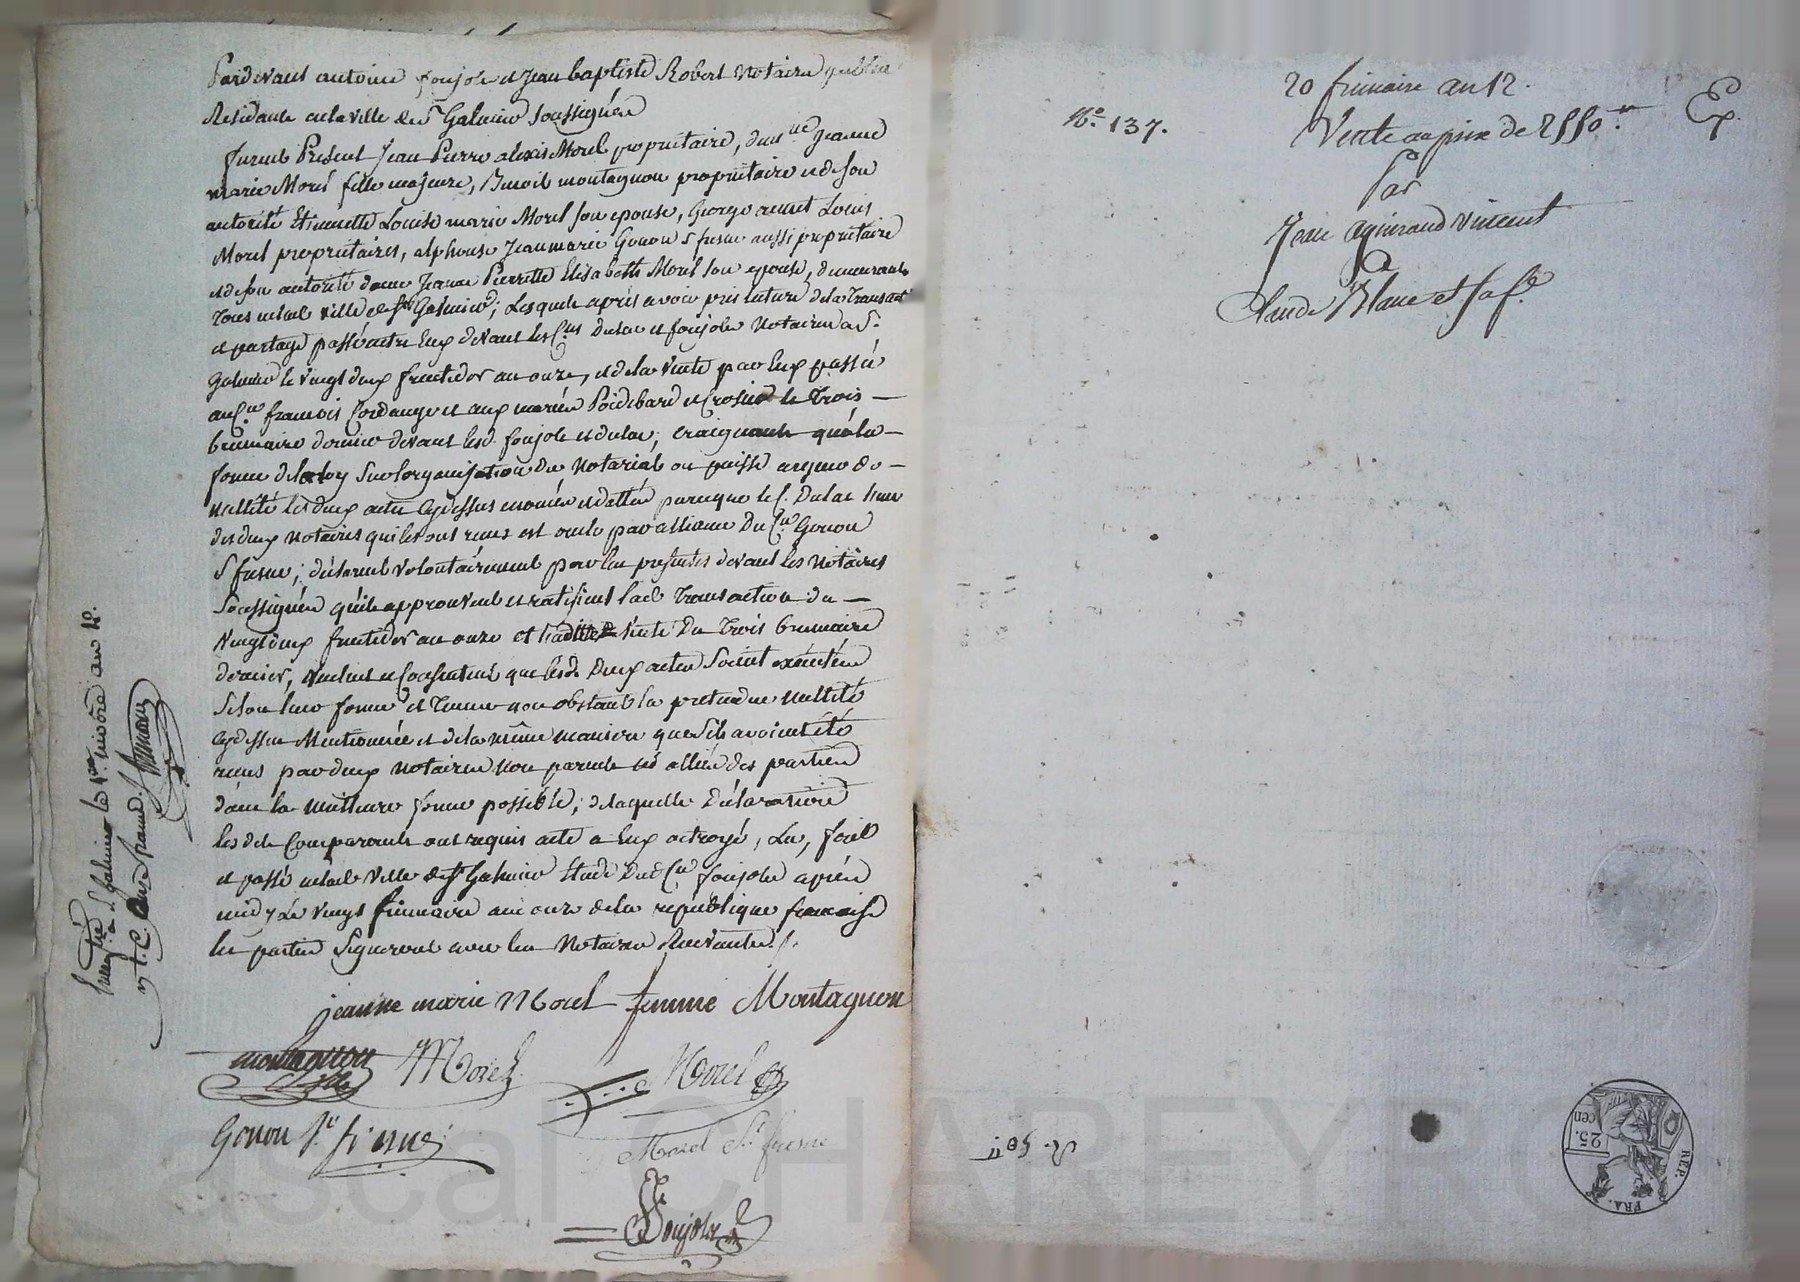 Pardevant antoine foujols et Jean baptiste Robert Notaires publics
Residants en la ville de St Galmier soussignés
furent Présent Jean Pierre alexis Morel propriétaire, dem.lle Jeanne
marie Morel fille majeure, Benoit montagnon propriétaire et de son
autorité Etiennette Louise marie Morel son epouse, George aimé Louis
Morel propriétaires, alphonse Jean marie Gonon St fresne aussi propriétaire
et de son autorité dame Jeanne Pierrette Elisabeth Morel son epouse, demeurants
Tous en lad. ville de St Galmier; Lesquels après avoir pris lecture de la Transact.
et partage passé entre Eux devant les C.ens Dulac et foujols Notaires a St
Galmier le vingt deux fructidor an onze, et de la vente par Eux passée
au C.en françois Cordange et aux mariés Poidebard et Crosier le Trois
brumaire dernier devant lesd. foujols et dulac; craignants qu'en la
forme de la loy sur l'organisation du Notariat on puisse arguer de
nullité les deux actes cydessus enoncés et dattés parceque le C. Dulac l'un
des deux Notaires qui les ont recus est oncle par alliance du C.en Gonon
St fresne; déclarent volontairement par les présentes devant les Notaires
soussignés qu'ils approuvent et ratifient lad. Transaction du
vingt deux fructidor an onze et vente du Trois brumaire
dernier, veulent et Consentent que lesd. deux actes soient exécutés
selon leur forme et Teneur non obstant la pretendue nullité
cydessus Mentionnée et de la même maniere que s'ils avoient été
recus par deux Notaires non parents ni alliés des parties
dans la meilleure forme possible; de laquelle déclaration
les dits Comparants ont requis acte a Eux octroyé, Lu, fait
et passé en lad. ville de St Galmier Etude dud. C.en foujols après
midy Le vingt frimaire an onze de la république francaise
les parties signeront avec les Notaires Recevants ./.
jeanne marie Morel femme Montagnon
montagnon Morel Morel
Gonon St fresne
Morel St fresne
Foujols
Enregistré a St Galmier le 1er nivôse an 12.
20 frimaire an 12.
N.º 137.
Vente au prix de
Par
Jean Vincent
A
Claude Blanc et sa fe
25.
cen
REP.
FRA.
Pascal CHAREYRO